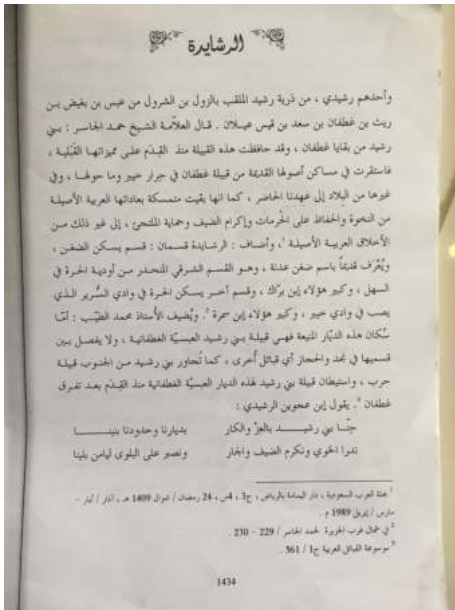 الرشايدة
وأحدهم رشيدي ، من ذرية رشيد الملقب بالزول بن الشرول من عبس بن بغيض بن
ريث بن غطفان بن سعد بن قيس عيلان . قال العلاّمة الشيخ حمد الجاسر : بني
رشيد من بقايا غطفان ، وقد حافظت هذه القبيلة منذ القِدَم على مميزاتها القَبَلية ،
فاستقرت في مساكن أصولها القديمة من قبيلة غطفان في حرار خيبر وما حولها ، وفي
غيرها من البلاد إلى عهدنا الحاضر ، كما انها بقيت متمسكة بعاداتها العربية الأصيلة
من النخوة والحفاظ على الحُرمات وإكرام الضيف وحماية الملتجئ ، إلى غير ذلك من
الأخلاق العربية الأصيلة ¹، وأضاف : الرشايدة قسمان : قسم يسكن الضغن ،
ويُعْرَف قديماً باسم ضغن عدنة ، وهو القسم الشرقي المنحدر من أودية الحرة في
السهل ، وكبير هؤلاء إبن برّاك ، وقسم آخر يسكن الحرة في وادي السُّرير الذي
يصب في وادي خيبر ، وكبير هؤلاء إبن سمرة ². ويُضيف الأستاذ محمد الطيّب : أمّا
سُكان هذه الديّار المنيعة فهي قبيلة بني رشيد العبسيّة الغطفانية ، ولا يفصل بين
قسميها في نجد والحجاز أي قبائل أُخرى ، كما تُجاور بني رشيد من الجنوب قبيلة
حرب ، واستيطان قبيلة بني رشيد لهذه الديار العبسيّة الغطفانية منذ القِدَم بعد تفرق
غطفان ³. يقول إبن عموين الرشيدي :
حِنّا بني رشيد بالعزّ والكار بديارنا وحدودنا بنينا
ندرا الخوي ونكرم الضيف والجار ونصبر على البلوى ليامن بلينا
¹ مجلة العرب السعودية ، دار اليمامة بالرياض ، ج3 ، 4س ، 24 رمضان / شوال 1409 هـ ، آذار / أيار –
مارس / إبريل 1989 م .
² في شمال غرب الجزيرة لحمد الجاسر / 229 - 230 .
³ موسوعة القبائل العربية ج1 / 361 .
1434